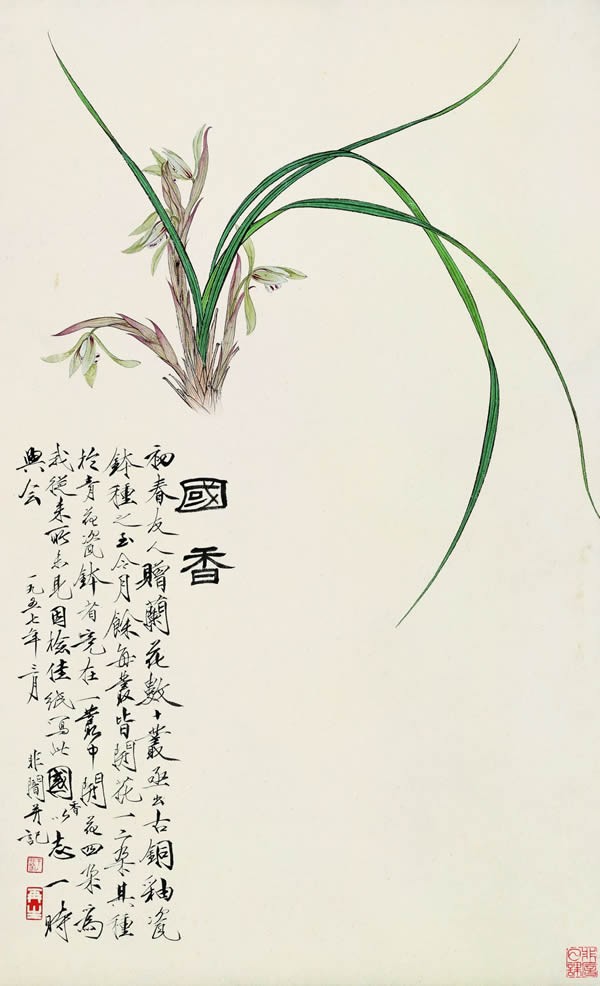 國香
初春友人贈蘭花數十叢亟出古銅釉瓷
鉢種之至今月餘每叢皆開花一二朶其種
於青花瓷鉢者竟在一叢中開花四朶為
我從來所未見因檢佳紙寫此國香以志一時
興會 一九五七年三月 非闇并記